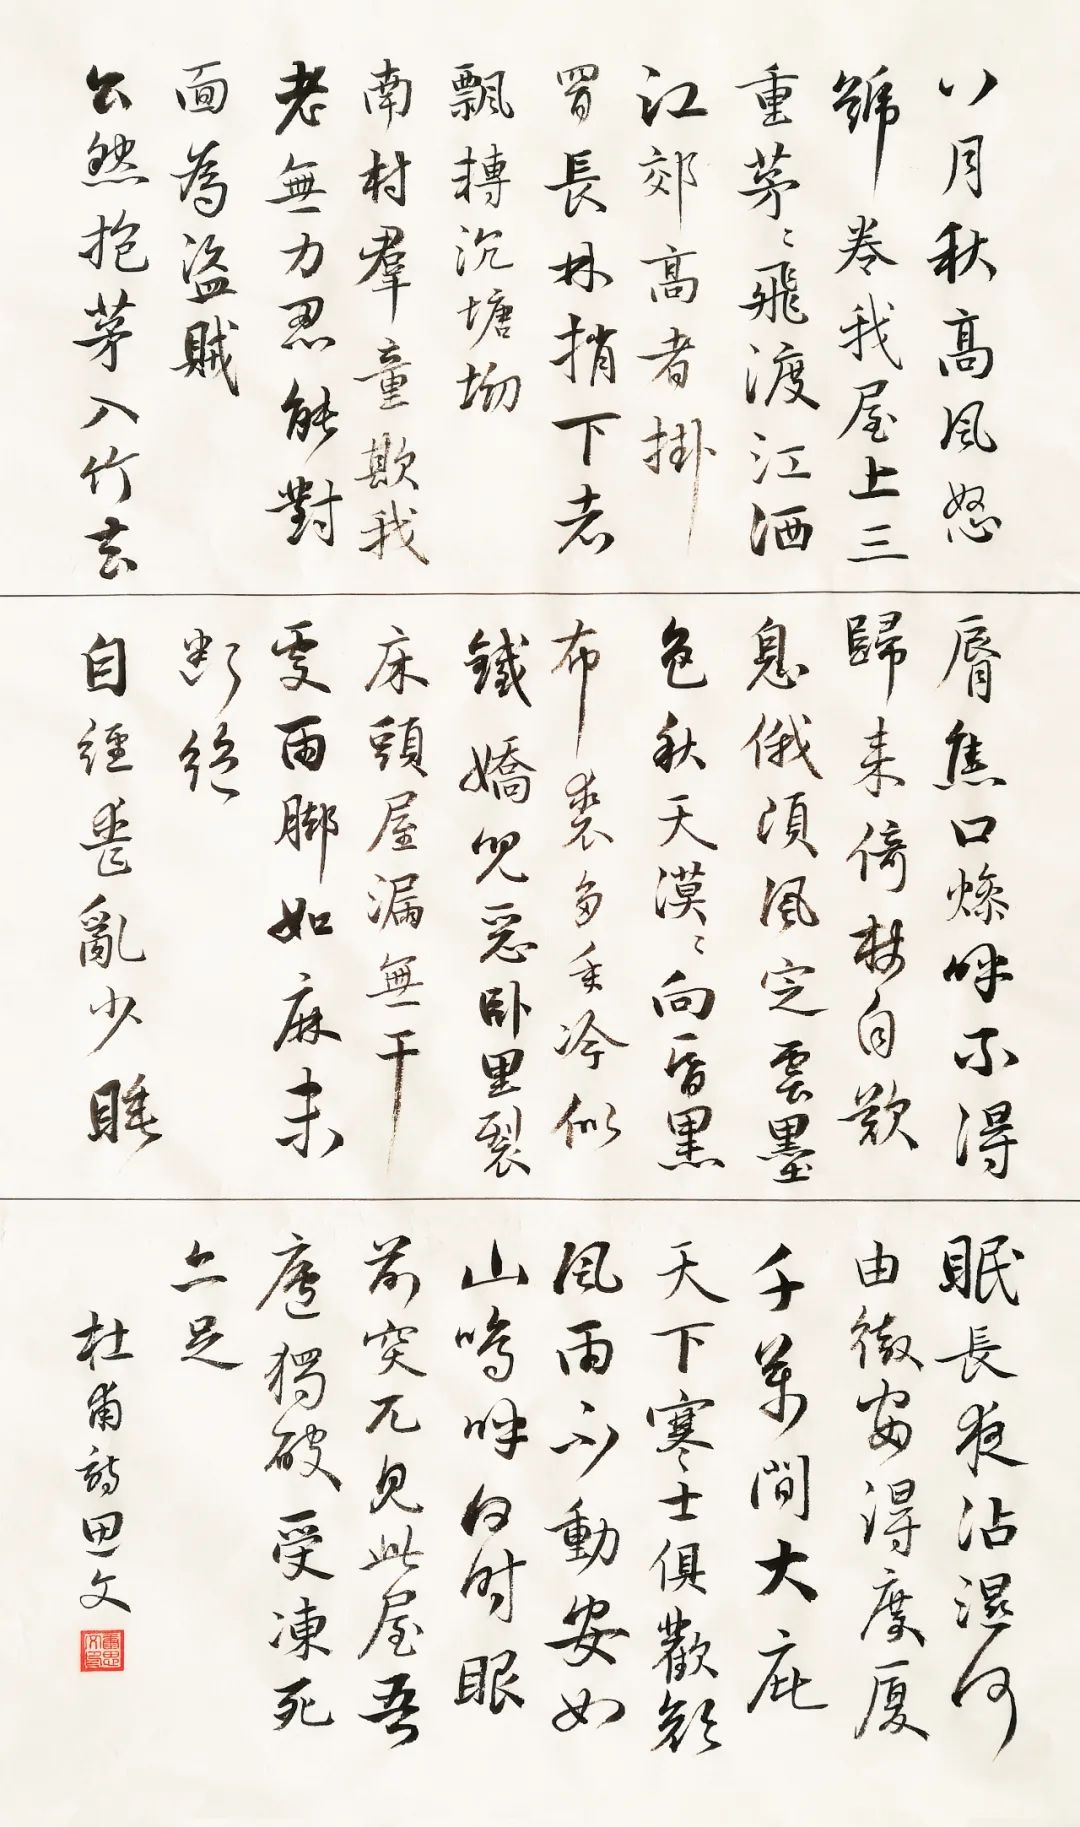 八月秋高風怒
號卷我屋上三
重茅〻飛渡江洒
江郊高者掛
罥長林梢下者
飄轉沉塘坳
南村羣童欺我
老無力忍能對
面為盜賊
公然抱茅入竹去
脣焦口燥呼不得
歸来倚杖自歎
息俄頃風定雲墨
色秋天漠〻向昏黑
布裘多年冷似
鐵嬌兒惡臥里裂
床頭屋漏無干
處雨脚如麻未
断絶
自經喪亂少睡
眠長夜沾濕何
由徹安得廣厦
千萬間大庇
天下寒士俱歡顔
風雨不動安如
山嗚呼何時眼
前突兀見此屋吾
廬獨破受凍死
亦足
杜甫詩思文